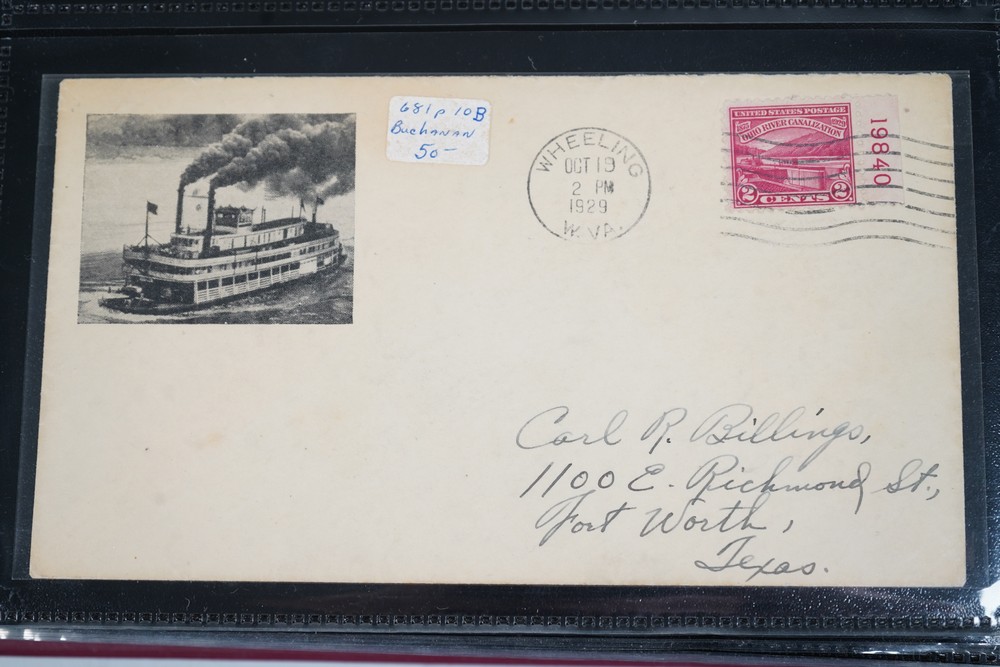 681p 10B
Buchanan
50-
WHEELING
OCT 19
2 PM
1929
W.VA.
UNITED STATES POSTAGE
OHIO RIVER CANALIZATION
2 CENTS 2
19840
Carl R. Billings,
1100 E. Richmond St.,
Fort Worth,
Texas.